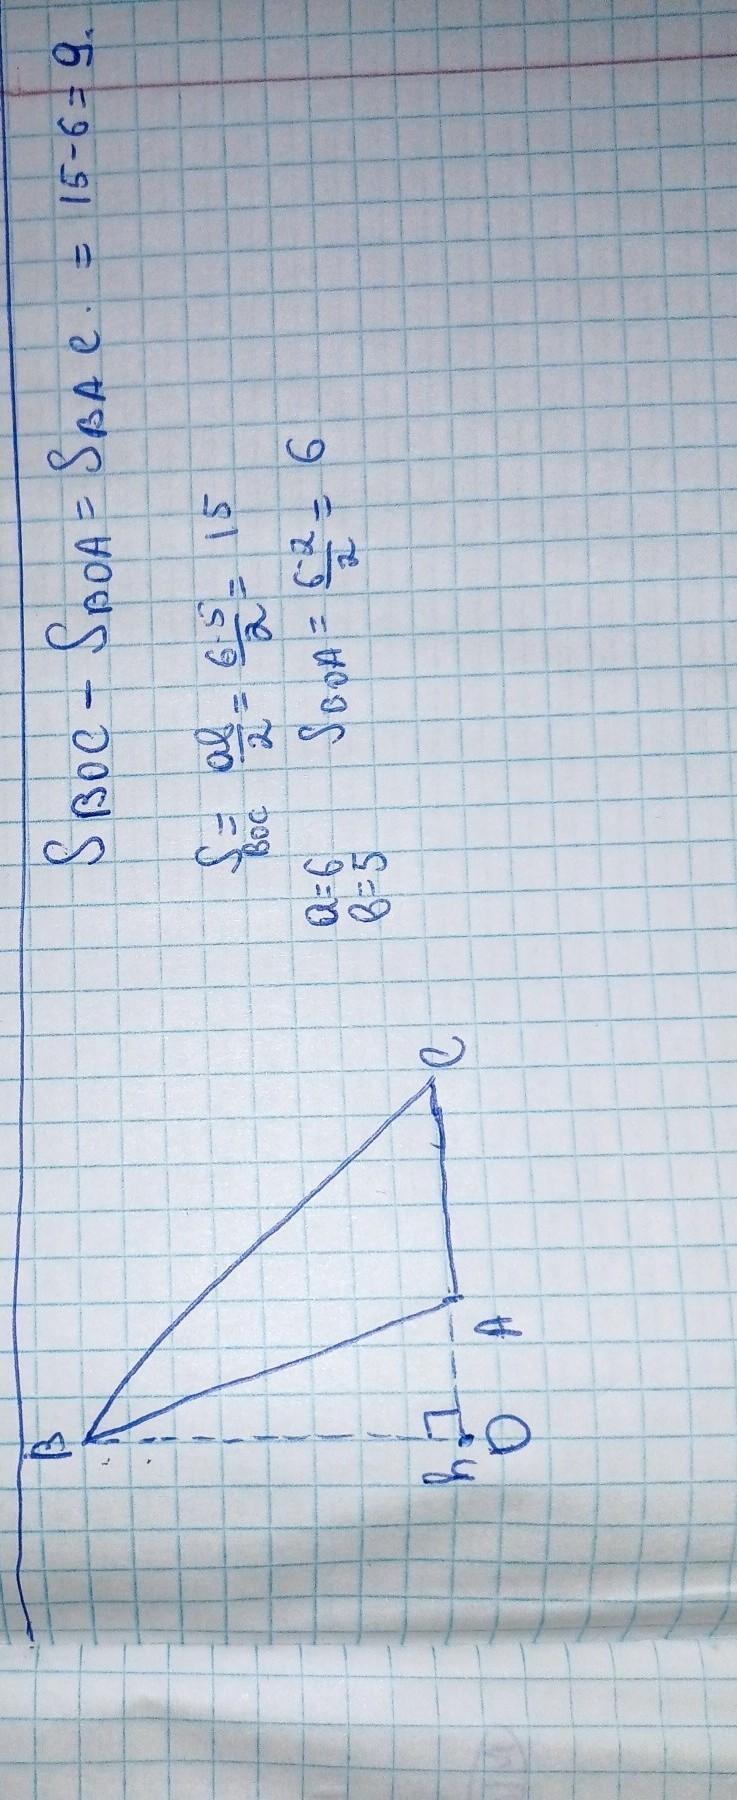 S BOC - S BOA = S BAC. = 15-6=9.
S BOC = ab/2 = 6·5/2 = 15
a=6
b=5
S BOA = 6·2/2 = 6
B
h
O
A
C